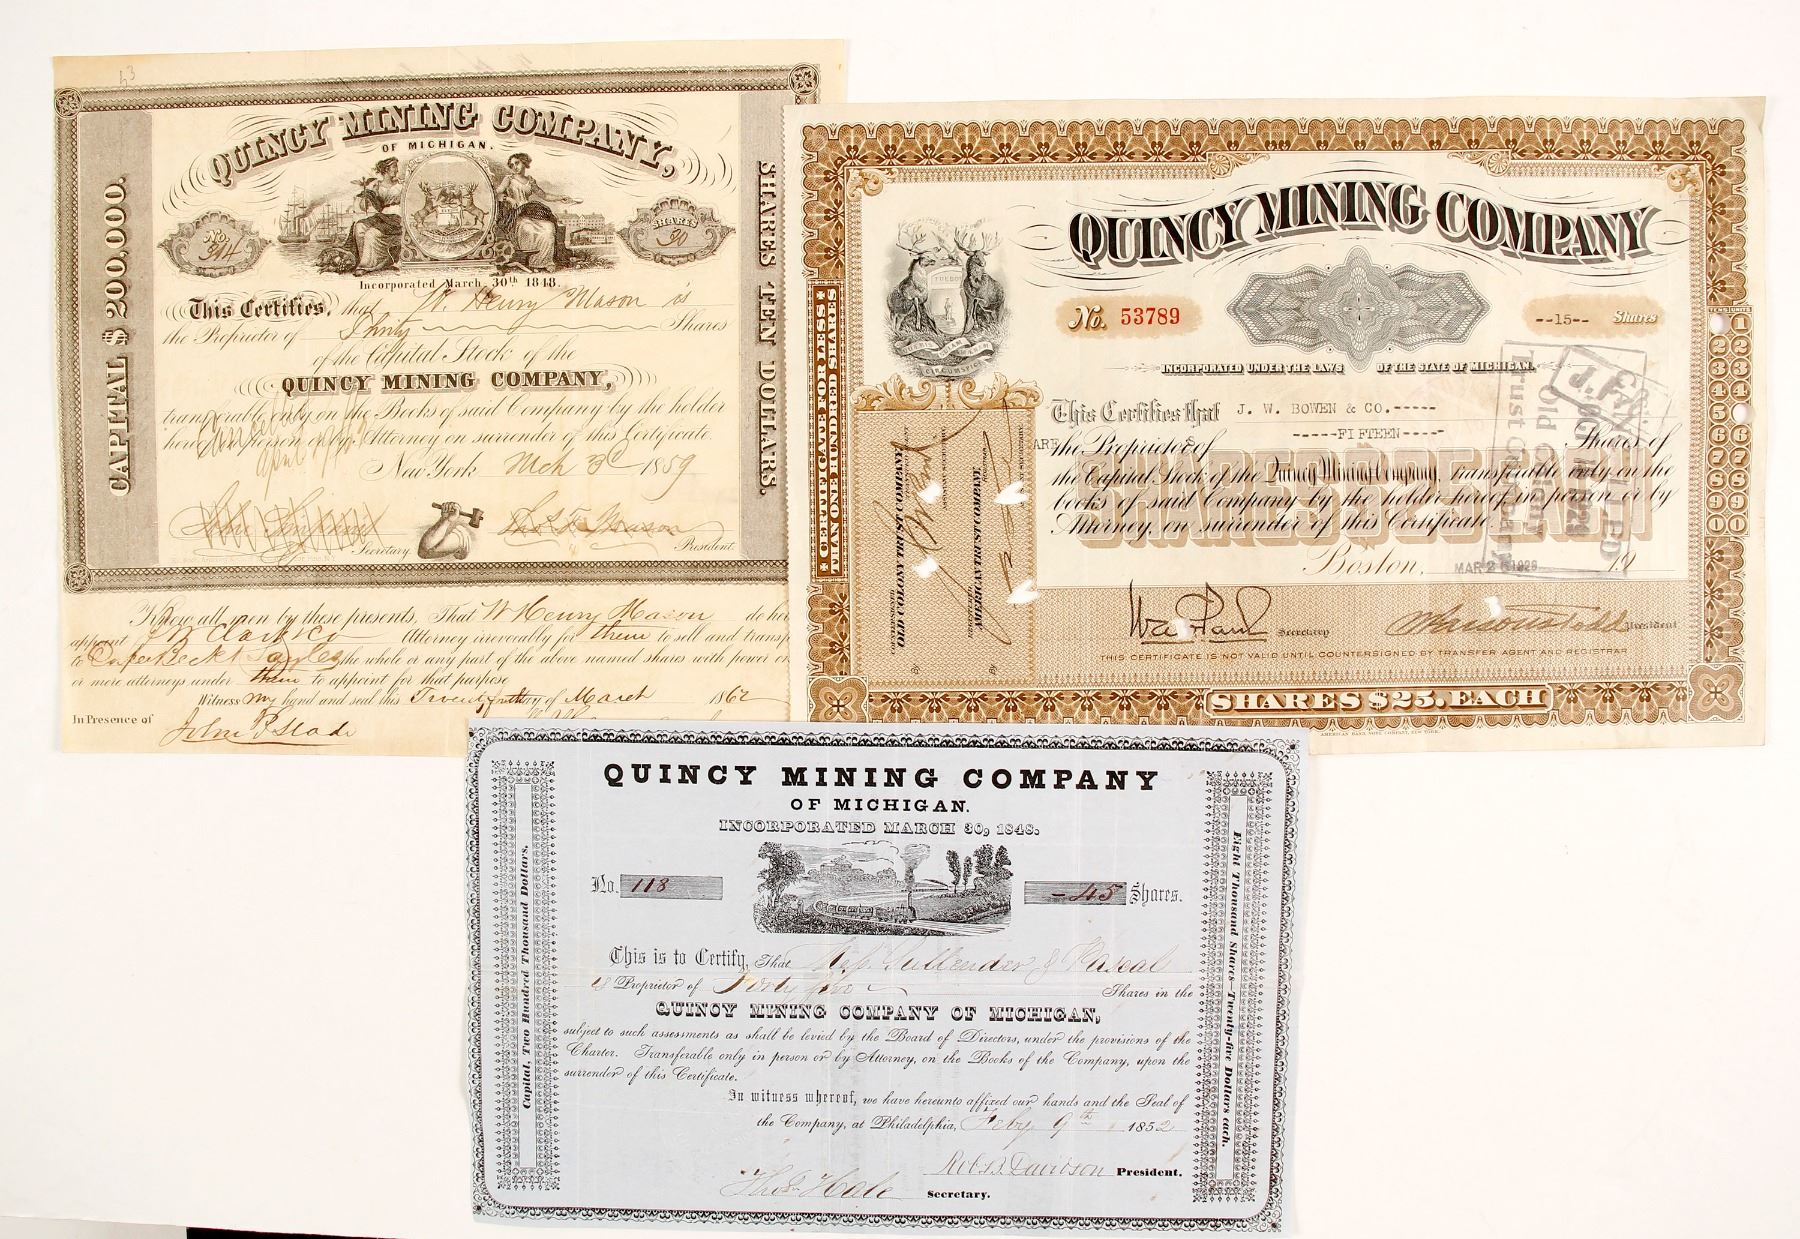 QUINCY MINING COMPANY,
OF MICHIGAN.
CAPITAL $200,000.
SHARES TEN DOLLARS.
No. 344
SHARES 30
Incorporated March 30th 1848.
This Certifies, that W. Henry Mason is
the Proprietor of Thirty Shares
of the Capital Stock of the
QUINCY MINING COMPANY,
transferable only on the Books of said Company by the holder
hereof in person or by Attorney on surrender of this Certificate.
Cancelled
April 1862
New York Mch 3d 1859
Secretary. Thos F. Mason President.
Know all men by these presents, That W Henry Mason do her
appoint Clark & Co Attorney irrevocably for them to sell and transf
to the whole or any part of the above named shares with power on
or more attorneys under them to appoint for that purpose
Witness my hand and seal this day of March 1862
In Presence of
John P Slade
QUINCY MINING COMPANY
TUEBOR
CIRCUMSPICE
No. 53789
--15-- Shares
TENS UNITS
1 1
2 2
3 3
4 4
5 5
6 6
7 7
8 8
9 9
0 0
INCORPORATED UNDER THE LAWS OF THE STATE OF MICHIGAN.
CERTIFICATE FOR LESS
THAN ONE HUNDRED SHARES
This Certifies that J. W. BOWEN & CO.-----
-----FIFTEEN-----
ARE the Proprietors of Shares of
the Capital Stock of the Quincy Mining Company, transferable only on the
books of said Company by the holder hereof in person or by
Attorney, on surrender of this Certificate.
SHARES $25 EACH
Boston, MAR 26 1929 19
Old Colony
Trust Company
OLD COLONY TRUST COMPANY
AMERICAN TRUST COMPANY
REGISTRAR
BY
BY
Secretary
President
THIS CERTIFICATE IS NOT VALID UNTIL COUNTERSIGNED BY TRANSFER AGENT AND REGISTRAR
SHARES $25. EACH
AMERICAN BANK NOTE COMPANY, NEW YORK.
QUINCY MINING COMPANY
OF MICHIGAN.
INCORPORATED MARCH 30, 1848.
Capital, Two Hundred Thousand Dollars.
Eight Thousand Shares—Twenty-five Dollars each.
No. 118
- 45 Shares.
This is to Certify, That & Pascal
is Proprietor of Forty five Shares in the
QUINCY MINING COMPANY OF MICHIGAN,
subject to such assessments as shall be levied by the Board of Directors, under the provisions of the
Charter. Transferable only in person or by Attorney, on the Books of the Company, upon the
surrender of this Certificate.
In witness whereof, we have hereunto affixed our hands and the Seal of
the Company, at Philadelphia, Feby 9th 1852
Rob. B. Davidson President.
Thos. Hale Secretary.